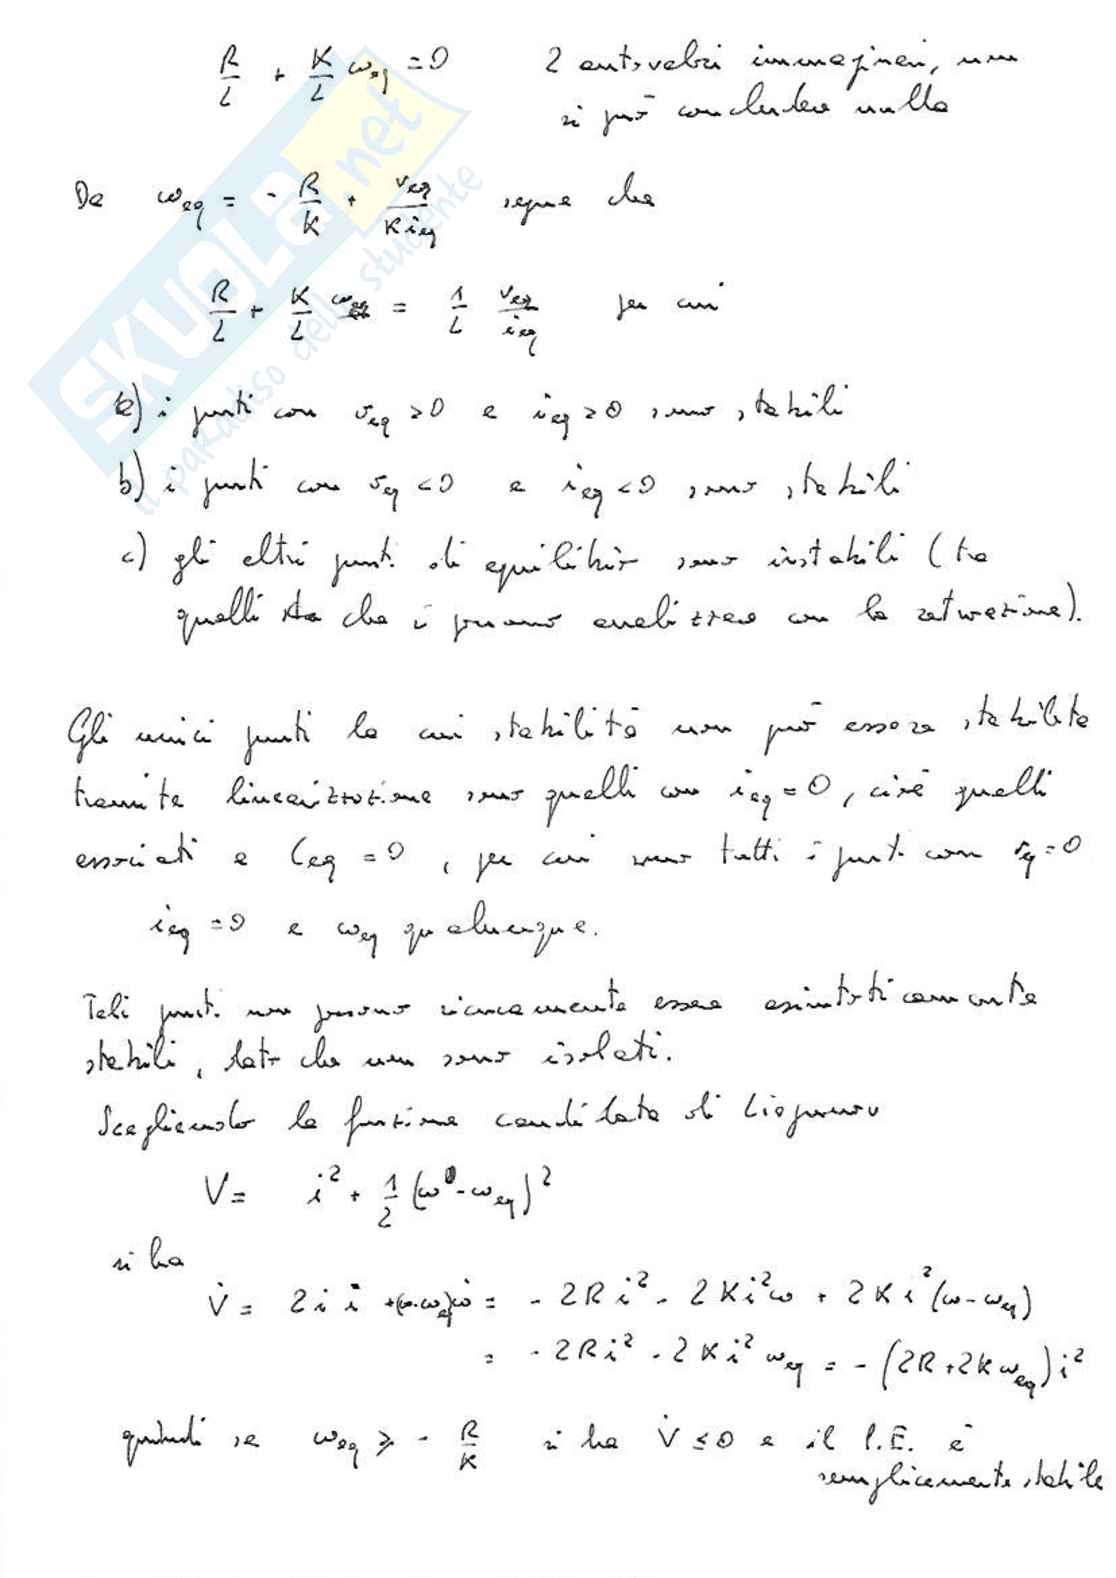 R/L + K/L ω_eq = 0    2 autovalori immaginari, non
si può concludere nulla
Da ω_eq = - R/K + v_eq/(K i_eq) segue che
R/L + K/L ω_eq = 1/L v_eq/i_eq per cui
a) i punti con v_eq > 0 e i_eq > 0 sono stabili
b) i punti con v_eq < 0 e i_eq < 0 sono stabili
c) gli altri punti di equilibrio sono instabili (tra
quelli che si possono analizzare con la ).
Gli unici punti la cui stabilità non può essere stabilita
tramite linearizzazione sono quelli con i_eq = 0, cioè quelli
associati a C_eq = 0, per cui sono tutti i punti con v_eq = 0
i_eq = 0 e ω_eq qualunque.
Tali punti non possono sicuramente essere asintoticamente
stabili, dato che non sono isolati.
Scegliendo la funzione candidata di Liapunov
V = i² + 1/2 (ω - ω_eq)²
si ha
V̇ = 2 i i̇ + (ω - ω_eq) ω̇ = - 2 R i² - 2 K i² ω + 2 K i² (ω - ω_eq)
= - 2 R i² - 2 K i² ω_eq = - (2R + 2K ω_eq) i²
quindi se ω_eq ≥ - R/K si ha V̇ ≤ 0 e il P.E. è
semplicemente stabile
SKUOLA.net
il paradiso dello studente